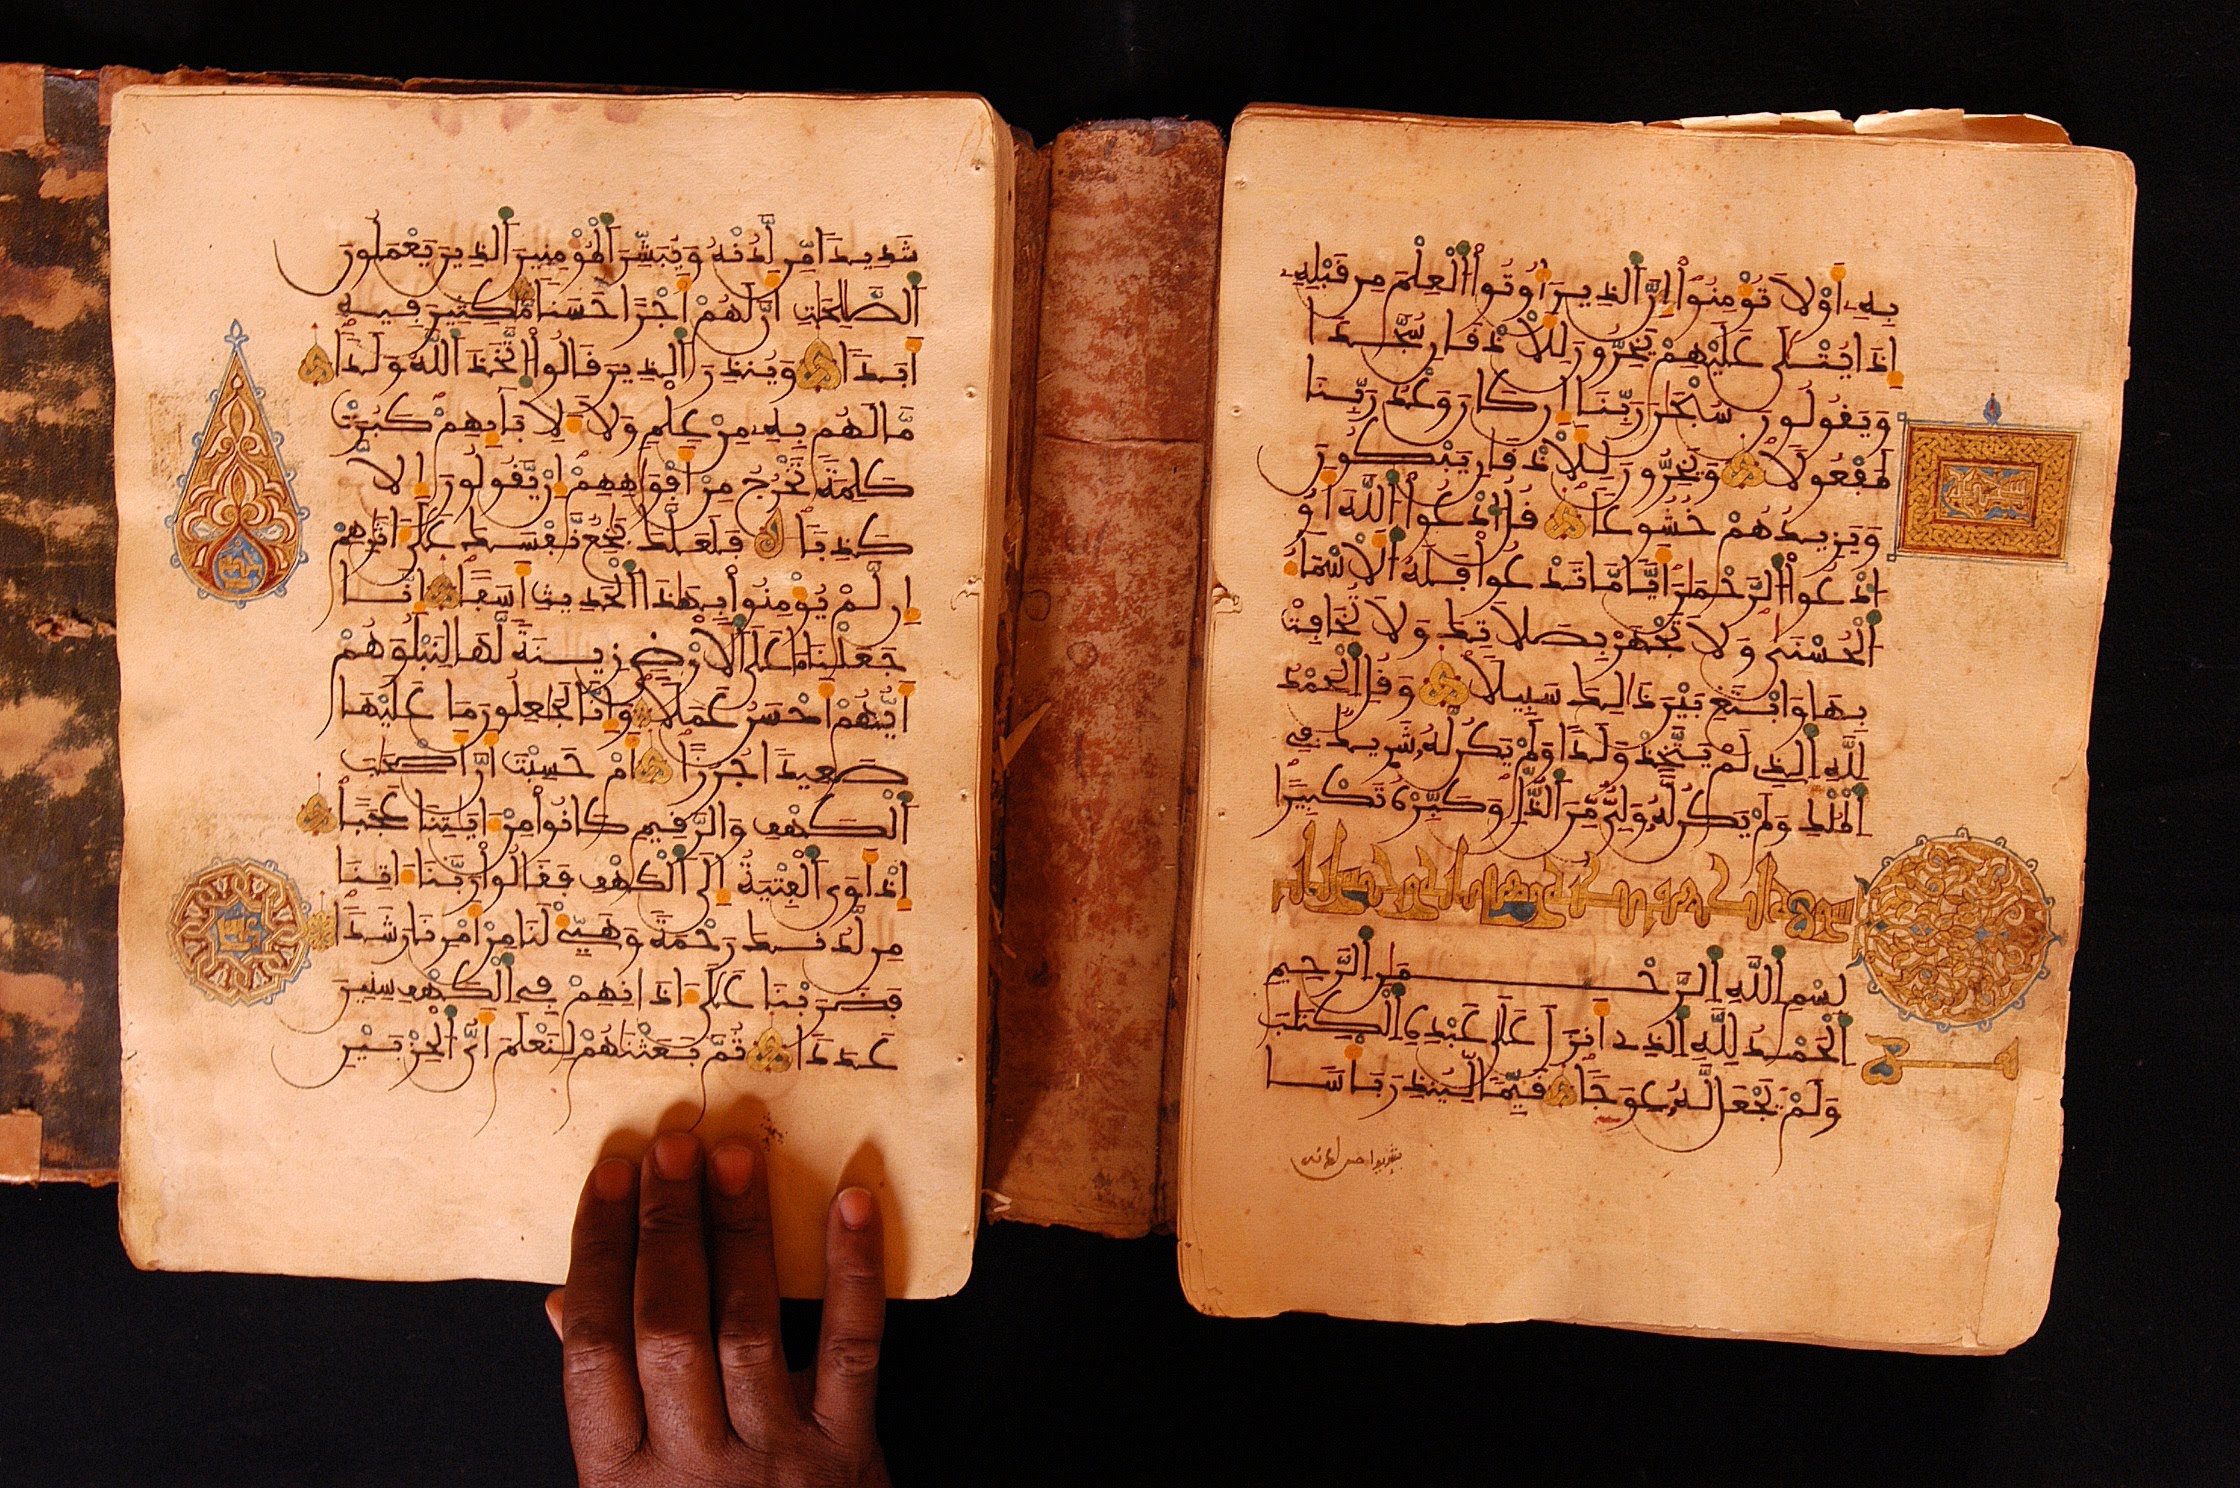 بِهِ أَوْ لَا تُؤْمِنُوا إِنَّ الَّذِينَ أُوتُوا الْعِلْمَ مِن قَبْلِهِ
إِذَا يُتْلَى عَلَيْهِمْ يَخِرُّونَ لِلْأَذْقَانِ سُجَّدًا
وَيَقُولُونَ سُبْحَنَ رَبِّنَا إِن كَانَ وَعْدُ رَبِّنَا
لَمَفْعُولًا وَيَخِرُّونَ لِلْأَذْقَانِ يَبْكُونَ
وَيَزِيدُهُمْ خُشُوعًا قُلُ ادْعُوا اللَّهَ أَوُ
ادْعُوا الرَّحْمَنَ أَيًّا مَّا تَدْعُوا فَلَهُ الْأَسْمَاءُ
الْحُسْنَى وَلَا تَجْهَرْ بِصَلَاتِكَ وَلَا تُخَافِتْ
بِهَا وَابْتَغِ بَيْنَ ذَلِكَ سَبِيلًا وَقُلِ الْحَمْدُ
لِلَّهِ الَّذِي لَمْ يَتَّخِذْ وَلَدًا وَلَمْ يَكُن لَّهُ شَرِيكٌ فِي
الْمُلْكِ وَلَمْ يَكُن لَّهُ وَلِيٌّ مِّنَ الذُّلِّ وَكَبِّرْهُ تَكْبِيرًا
سورة الكهف
بِسْمِ اللَّهِ الرَّحْمَنِ الرَّحِيمِ
الْحَمْدُ لِلَّهِ الَّذِي أَنزَلَ عَلَى عَبْدِهِ الْكِتَبَ
وَلَمْ يَجْعَل لَّهُ عِوَجًا قَيِّمًا لِّيُنذِرَ بَأْسًا
شَدِيدًا مِّن لَّدُنْهُ وَيُبَشِّرَ الْمُؤْمِنِينَ الَّذِينَ يَعْمَلُونَ
الصَّلِحَتِ أَنَّ لَهُمْ أَجْرًا حَسَنًا مَّكِثِينَ فِيهِ
أَبَدًا وَيُنذِرَ الَّذِينَ قَالُوا اتَّخَذَ اللَّهُ وَلَدًا
مَّا لَهُم بِهِ مِنْ عِلْمٍ وَلَا لِأَبَائِهِمْ كَبُرَتْ
كَلِمَةً تَخْرُجُ مِنْ أَفْوَاهِهِمْ إِن يَّقُولُونَ إِلَّا
كَذِبًا فَلَعَلَّكَ بَخِعٌ نَّفْسَكَ عَلَى ءَاثَرِهِمْ
إِن لَّمْ يُؤْمِنُوا بِهَذَا الْحَدِيثِ أَسَفًا إِنَّا
جَعَلْنَا مَا عَلَى الْأَرْضِ زِينَةً لَّهَا لِنَبْلُوَهُمْ
أَيُّهُمْ أَحْسَنُ عَمَلًا وَإِنَّا لَجَعِلُونَ مَا عَلَيْهَا
صَعِيدًا جُرُزًا أَمْ حَسِبْتَ أَنَّ أَصْحَبَ
الْكَهْفِ وَالرَّقِيمِ كَانُوا مِنْ ءَايَتِنَا عَجَبًا
إِذْ أَوَى الْفِتْيَةُ إِلَى الْكَهْفِ فَقَالُوا رَبَّنَا ءَاتِنَا
مِن لَّدُنكَ رَحْمَةً وَهَيِّئْ لَنَا مِنْ أَمْرِنَا رَشَدًا
فَضَرَبْنَا عَلَى ءَاذَانِهِمْ فِي الْكَهْفِ سِنِينَ
عَدَدًا ثُمَّ بَعَثْنَهُمْ لِنَعْلَمَ أَيُّ الْحِزْبَيْنِ